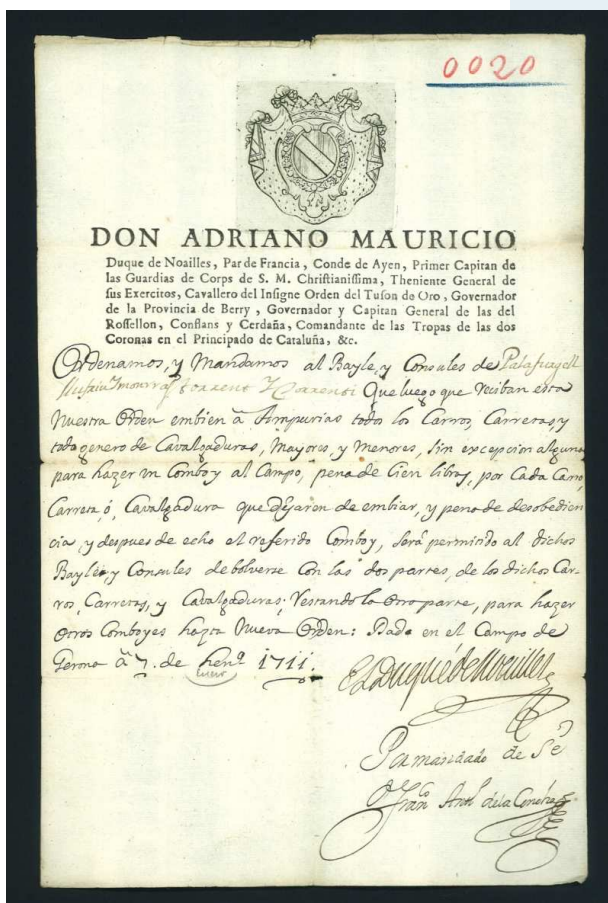 0020
DON ADRIANO MAURICIO
Duque de Noailles, Par de Francia, Conde de Ayen, Primer Capitan de
las Guardias de Corps de S. M. Christianissima, Theniente General de
sus Exercitos, Cavallero del Insigne Orden del Tuson de Oro, Governador
de la Provincia de Berry, Governador y Capitan General de las del
Rossellon, Conflans y Cerdaña, Comandante de las Tropas de las dos
Coronas en el Principado de Cataluña, &c.
Ordenamos, y Mandamos al Bayle, y Consules de Palafrugell
Torrent y Que luego que reciban esta
Nuestra Orden embien â Ampurias todos los Carros, Carretas, y
todo genero de Cavalgaduras, Mayores, y Menores, sin excepcion alguna
para hazer un Comboy al Campo, pena de Cien libras, por Cada Carro,
Carreta, ó, Cavalgadura que dejaren de embiar, y pena de desobedien
cia, y despues de echo el referido Comboy, será permitido al dichos
Bayle, y Consules debolverse Con las dos partes, de los dichos Car-
ros, Carretas, y Cavalgaduras; Restando la otra parte, para hazer
otros Comboyes hazta Nueva Orden: Dada en el Campo de
Gerona â 7. de henº 1711.
Enero
El Duque de Noailles
Pa mandado de Sé
Franco Anto de la